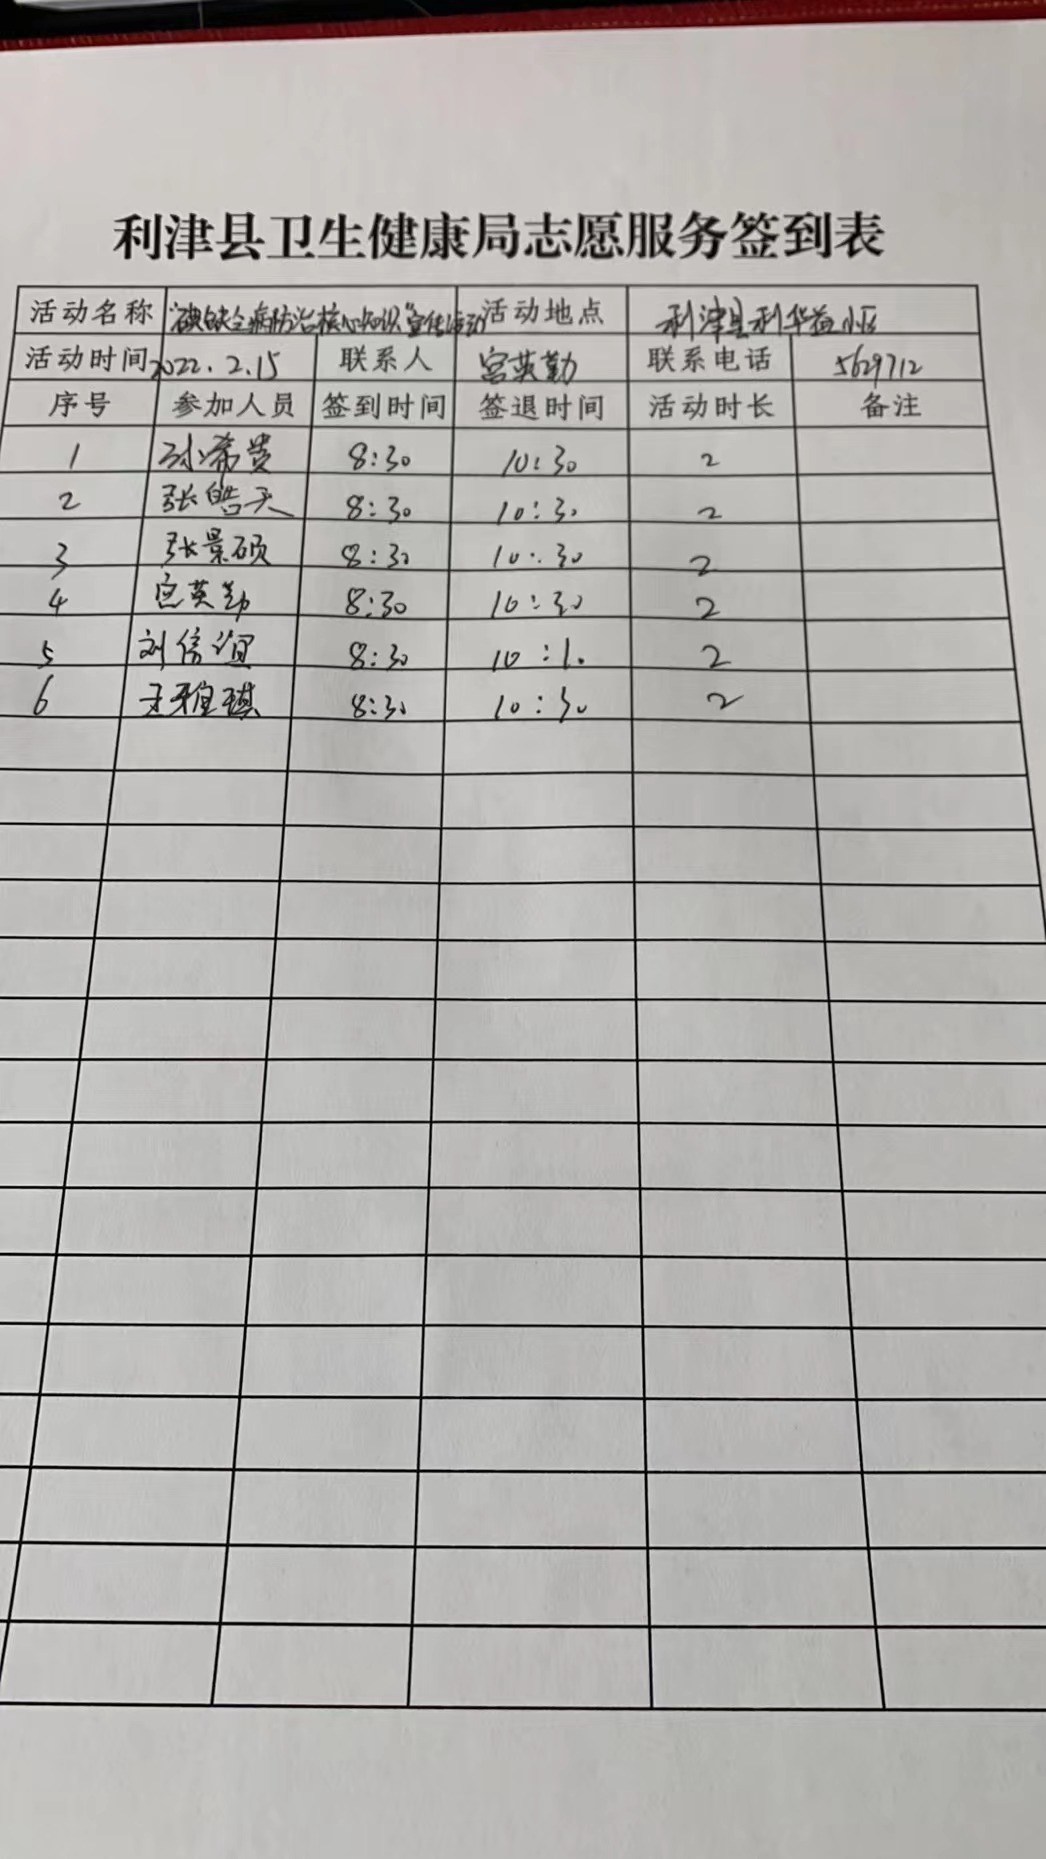 利津县卫生健康局志愿服务签到表
活动名称 "碘缺乏病防治核心知识"宣传活动 活动地点 利津县利华益小区
活动时间 2022.2.15 联系人 宫英勤 联系电话 5629712
序号 参加人员 签到时间 签退时间 活动时长 备注
1 孙希贵 8:30 10:30 2
2 张皓天 8:30 10:30 2
3 张景硕 8:30 10:30 2
4 宫英勤 8:30 10:30 2
5 刘信谊 8:30 10: 2
6 王雅琪 8:30 10:30 2